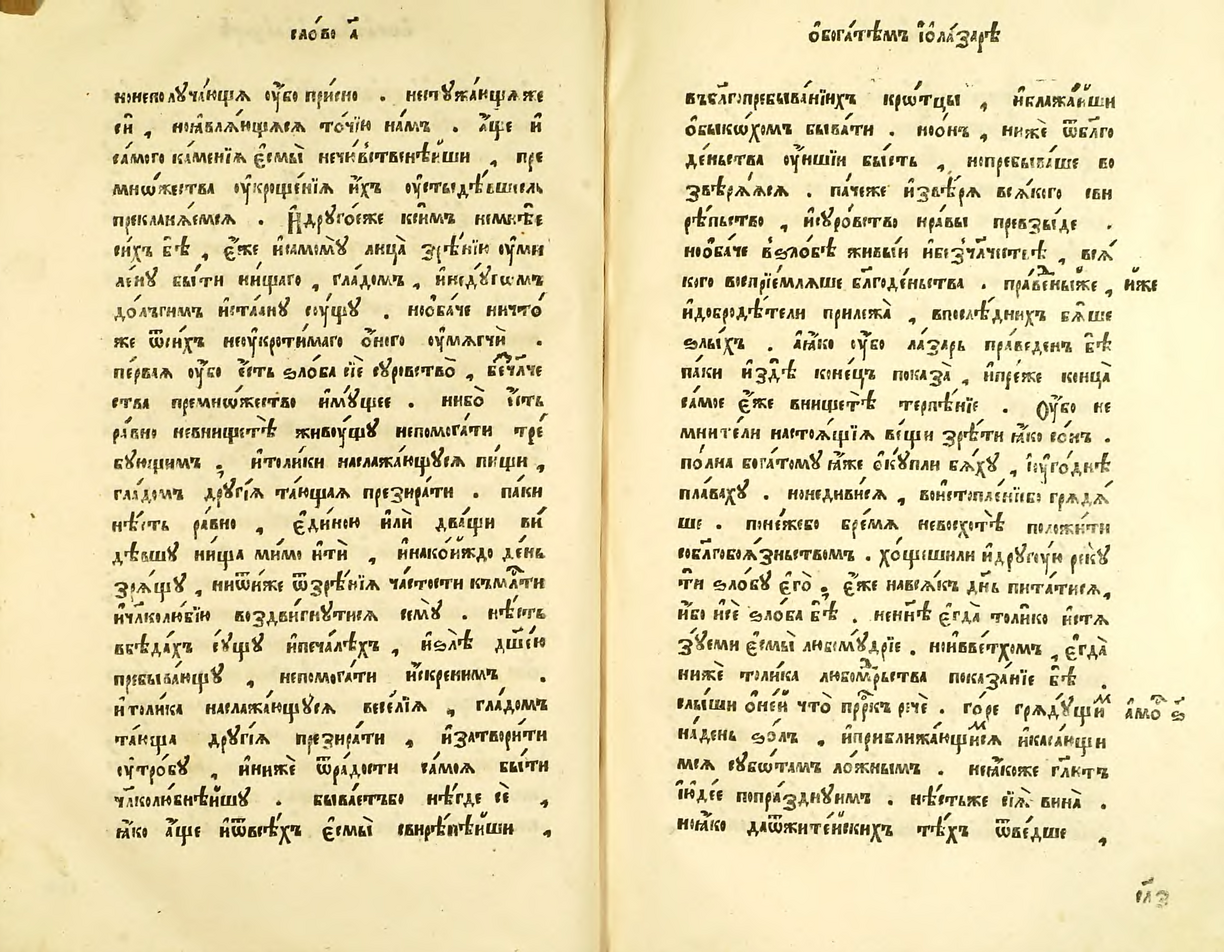 сло́во а҃
нонеполꙋча́ющїѧ ᲂу҆́бо при́сно . несꙋжа́ющаѧже
е҆й , ноꙗ҆влѧ́ющаѧсѧ то́чїю на́мъ . а҆́ще и҆
са́мого ка́менїѧ є҆смы̀ нечю́вственѣйши , пре
мно́жества ᲂу҆кроще́нїѧ и҆́хъ
преклонѧ́емсѧ . И҆дрꙋго́еже
си́хъ бѣ̀ , є҆́же и҆самомꙋ̀ лица̀ зрѣ́нїю ᲂу҆ми
ле́нꙋ бы́ти ни́щаго , гла́домъ , и҆недꙋ́гѡмъ
до́лъгимъ и҆ста́анꙋ сꙋ́щꙋ . нооба́че ничто́
же ѿси́хъ неᲂу҆кроти́маго о҆́ного ᲂу҆мѧгчѝ .
пе́рваѧ ᲂу҆́бо є҆́сть ѕло́ба сїѐ сꙋ́ровство , бесчл҃че
ства премно́жество и҆мꙋ́щее . нибо̀ є҆́сть
ра́вно невнищетѣ̀ живꙋ́щꙋ непомога́ти тре́
бꙋющимъ . и҆толи́ки наслажа́ющꙋсѧ пи́щи ,
гла́домъ дрꙋгі́ѧ та́ющаѧ презира́ти . па́ки
нѣ́сть ра́вно , є҆ди́ною и҆лѝ два́щи ви́
дѣвшꙋ ни́ща ми́мо и҆тѝ , и҆нако́ижⷣо де́нь
зрѧ́щꙋ , ниѿни́же ѿзрѣ́нїѧ ча́стости къмлⷭ҇ти
и҆чл҃колю́бїю воздви́гнꙋтисѧ семꙋ̀ . нѣ́сть
вбѣда́хъ сꙋ́щꙋ и҆печа́лѣхъ , и҆ѕлѣ̀ дш҃е́ю
пребыва́ющꙋ , непомога́ти и҆́скренимъ .
и҆толи́ка наслажа́ющꙋсѧ весе́лїѧ , гла́домъ
та́юща дрꙋгі́ѧ презира́ти , и҆затвори́ти
ᲂутро́бꙋ , и҆нижѐ ѿра́дости самоѧ̀ бы́ти
чл҃колю́бнѣйшꙋ . быва́етъбо нѣ́где сѐ ,
ꙗ҆́ко а҆́ще и҆ѿвсѣ́хъ є҆смы̀ свирѣпѣ́йши ,
о҆бога́тѣмъ і҆ѡла́зарѣ
въбл҃гопребыва́нїихъ кро́тцы , и҆блажа́йши
о҆быко́хомъ быва́ти . ноо҆́нъ , нижѐ ѿбл҃го
де́ньства ᲂу҆́ншїи бы́сть , нопребыва́ше во
звѣрѧ́ѧсѧ . па́чеже и҆звѣ́рѧ всѧ́кого сви
рѣ́пьство , и҆сꙋ́ровство нра́вы превзы́де .
нооба́че вѕло́бѣ живы́и и҆безчл҃честве , всѧ́
кого воспрїе́млѧше бл҃годе́ньства . првⷣныиже , и҆́же
и҆добродѣ́тели прилежа̀ , впослѣ́днихъ бѧ́ше
ѕлы́хъ . а҆ꙗ҆́ко ᲂу҆́бо ла́зарь пра́веденъ бѣ̀
па́ки и҆здѣ̀ коне́цъ показа̀ , и҆пре́же конца̀
са́мое є҆́же внищетѣ̀ терпѣ́нїе . Оу҆́бо не
мни́тели настоѧ́щїѧ ве́щи зрѣ́ти ꙗ҆́ко со́нъ .
по́лна бога́томꙋ ꙗ҆́же о҆кꙋ́пли бѧ́хꙋ , і҆ᲂу҆го́днѣ
пла́вахꙋ . нонедиви́сѧ , воистопле́нїибо грѧдѧ́
ше . поне́жебо бре́мѧ невосхотѣ̀ положи́ти
собл҃гобоѧ́зньствомъ . хо́щешили и҆дрꙋгꙋ́ю рекꙋ̀
ти ѕло́бꙋ є҆гѡ̀ , є҆́же навсѧ́къ дн҃ь пита́тисѧ ,
и҆́бо и҆сѐ ѕло́ба бѣ̀ . нени́нѣ є҆гда̀ толи́ко и҆стѧ
зꙋ́еми є҆смы̀ любомꙋ́дрїе . ноиввѐтхомъ , є҆гда̀
нижѐ толи́ка любомⷣрьства показа́нїе бѣ̀ .
слы́ши о҆не́и что̀ прⷪ҇ркъ речѐ . го́ре грѧдꙋ́щиⷨ а҆мо́ⷭ ѕ҃
надень ѕо́лъ , и҆приближа́ющиⷨсѧ и҆каса́ющи
мсѧ сꙋбо́тамъ ло́жнымъ . неꙗ҆́коже гл҃ютъ
і҆ꙋде́е попра́зднꙋимъ . нѣ́стьже сїѧ̀ вина̀ .
ноꙗ҆́ко даѿжите́йскихъ тѣ́хъ ѿве́дше ,
сл҃з